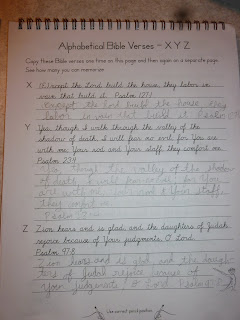 Alphabetical Bible Verses ~ X Y Z
Copy these Bible verses one time on this page and then again on a separate page.
See how many you can memorize.
X
Except the Lord build the house, they labor in
vain that build it. Psalm 127:1
Except the Lord build the house they
labor in vain that build it. Psalm 127:1
Y
Yea, though I walk through the valley of the
shadow of death, I will fear no evil; for You are
with me; Your rod and Your staff, they comfort me.
Psalm 23:4
Yea, though the valley of the shadow
of death I will fear no evil for You
are with me and Your staff
they comfort me.
Psalm 23:4
Z
Zion hears and is glad, and the daughters of Judah
rejoice because of Your judgments, O Lord.
Psalm 97:8
Zion hears and is glad, and the daugh-
ters of Judah rejoice because of
Your judgments, O Lord. Psalm 97:8
Use correct pencil position.